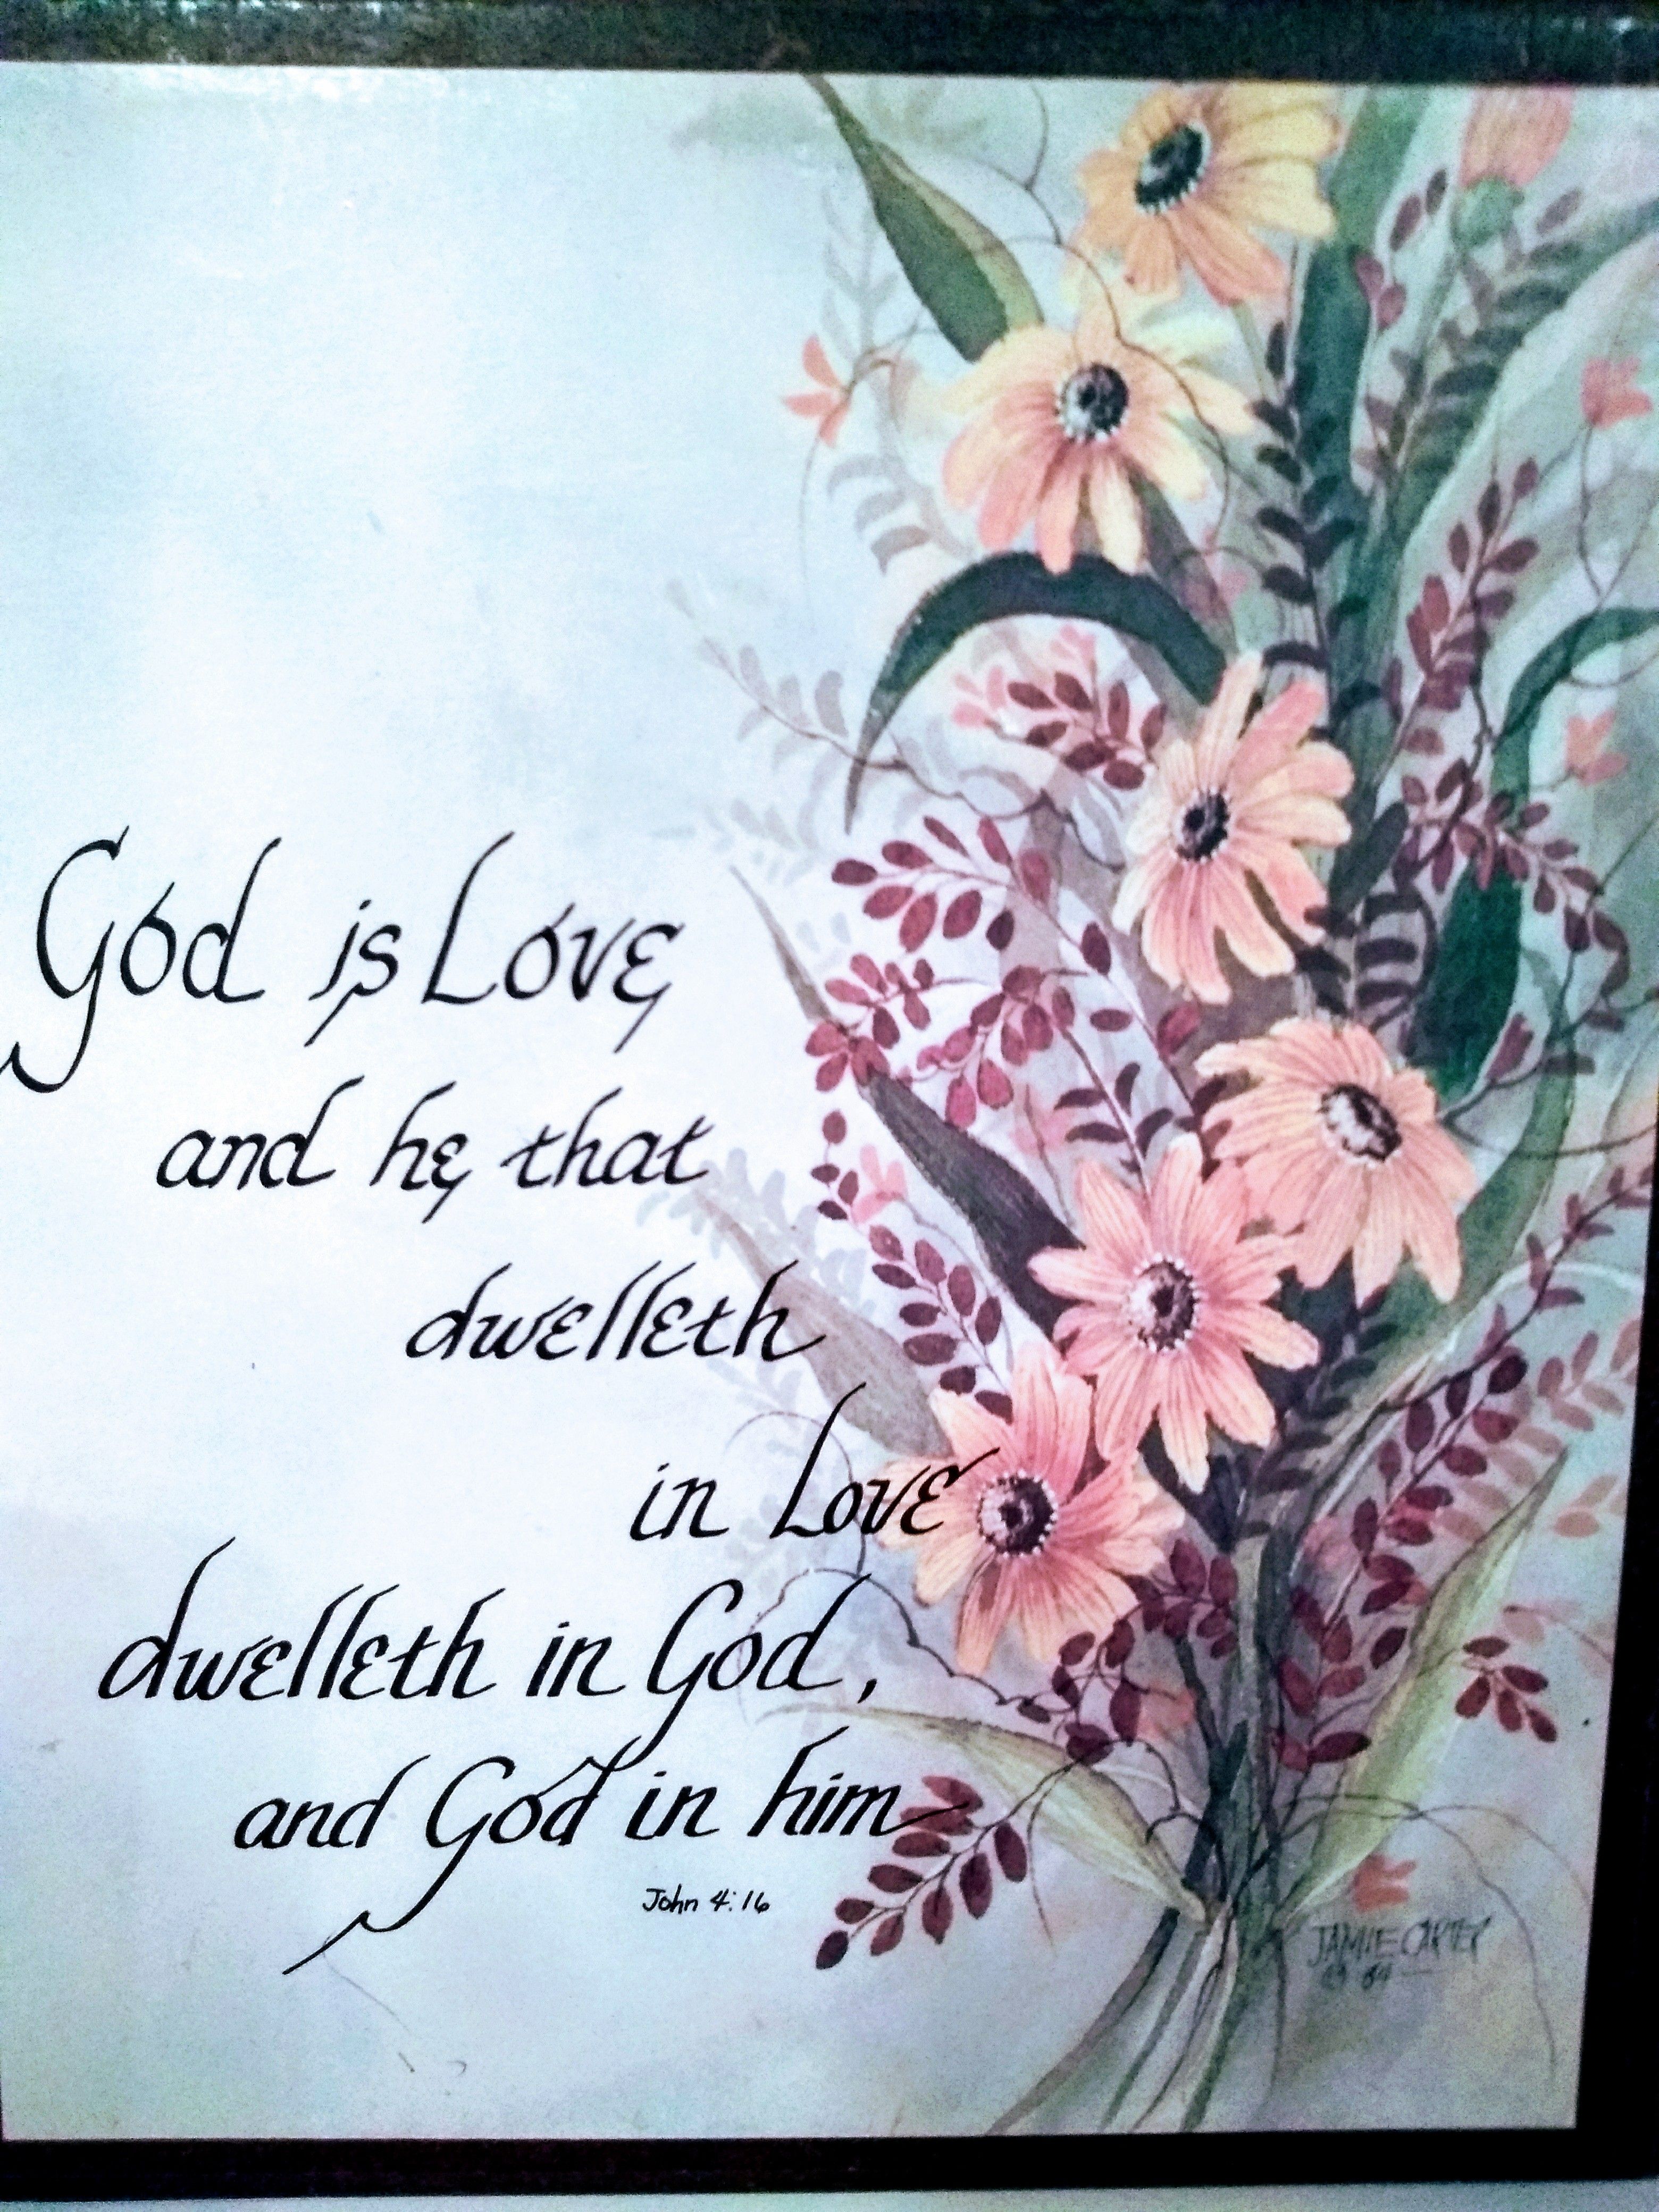 God is Love
and he that
dwelleth
in Love
dwelleth in God,
and God in him
John 4:16
JAMIE CARTER